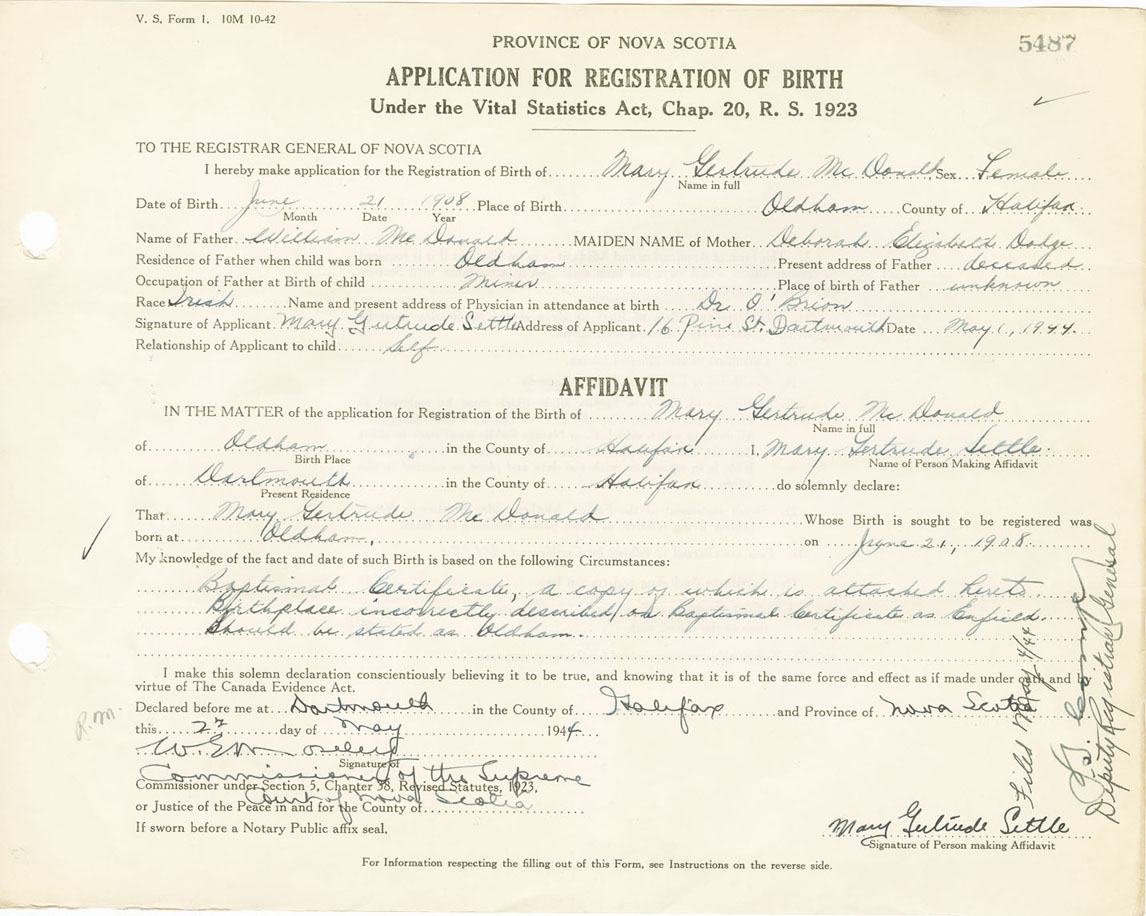 V. S. Form 1. 10M 10-42
PROVINCE OF NOVA SCOTIA
5487
APPLICATION FOR REGISTRATION OF BIRTH
Under the Vital Statistics Act, Chap. 20, R. S. 1923
TO THE REGISTRAR GENERAL OF NOVA SCOTIA
I hereby make application for the Registration of Birth of Mary Gertrude Mc Donald Sex Female
Name in full
Date of Birth June 21 1908 Place of Birth Oldham County of Halifax
Month Date Year
Name of Father William Mc Donald MAIDEN NAME of Mother Deborah Elizabeth Dodge
Residence of Father when child was born Oldham Present address of Father deceased
Occupation of Father at Birth of child Miner Place of birth of Father unknown
Race Irish Name and present address of Physician in attendance at birth Dr. O'Brion
Signature of Applicant Mary Gertrude Settle Address of Applicant 16 Pine St. Dartmouth Date May 1, 1944.
Relationship of Applicant to child Self
AFFIDAVIT
IN THE MATTER of the application for Registration of the Birth of Mary Gertrude Mc Donald
Name in full
of Oldham in the County of Halifax I, Mary Gertrude Settle
Birth Place Name of Person Making Affidavit
of Dartmouth in the County of Halifax do solemnly declare:
Present Residence
That Mary Gertrude Mc Donald Whose Birth is sought to be registered was
born at Oldham, on June 21, 1908
My knowledge of the fact and date of such Birth is based on the following Circumstances:
Baptismal Certificate, a copy of which is attached hereto.
Birthplace incorrectly described on Baptismal Certificate as Enfield.
Should be stated as Oldham.
I make this solemn declaration conscientiously believing it to be true, and knowing that it is of the same force and effect as if made under oath and by
virtue of The Canada Evidence Act.
Declared before me at Dartmouth in the County of Halifax and Province of Nova Scotia
R.M.
this 2nd day of May 1944
W. E.
Signature of
Commissioner of the Supreme
Commissioner under Section 5, Chapter 38, Revised Statutes, 1923,
Court of Nova Scotia
or Justice of the Peace in and for the County of
If sworn before a Notary Public affix seal.
Mary Gertrude Settle
Signature of Person making Affidavit
For Information respecting the filling out of this Form, see Instructions on the reverse side.
Filed May 4/44
Deputy Registrar General